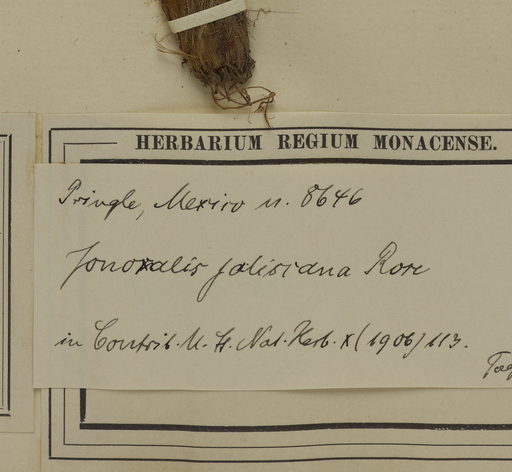 HERBARIUM REGIUM MONACENSE.
Pringle, Mexico n. 8646
Jonoxalis jaliscana Rose
in Contrib. U. St. Nat. Herb. X (1906) 113.